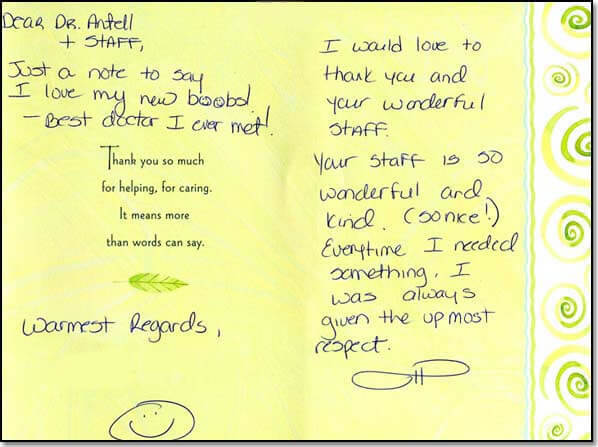 Dear Dr. Antell
+ Staff,
Just a note to say
I love my new boobs!
- Best doctor I ever met!
Thank you so much
for helping, for caring.
It means more
than words can say.
Warmest Regards,
I would love to
thank you and
your wonderful
staff.
Your staff is so
wonderful and
kind. (so nice!)
Everytime I needed
something, I
was always
given the upmost
respect.